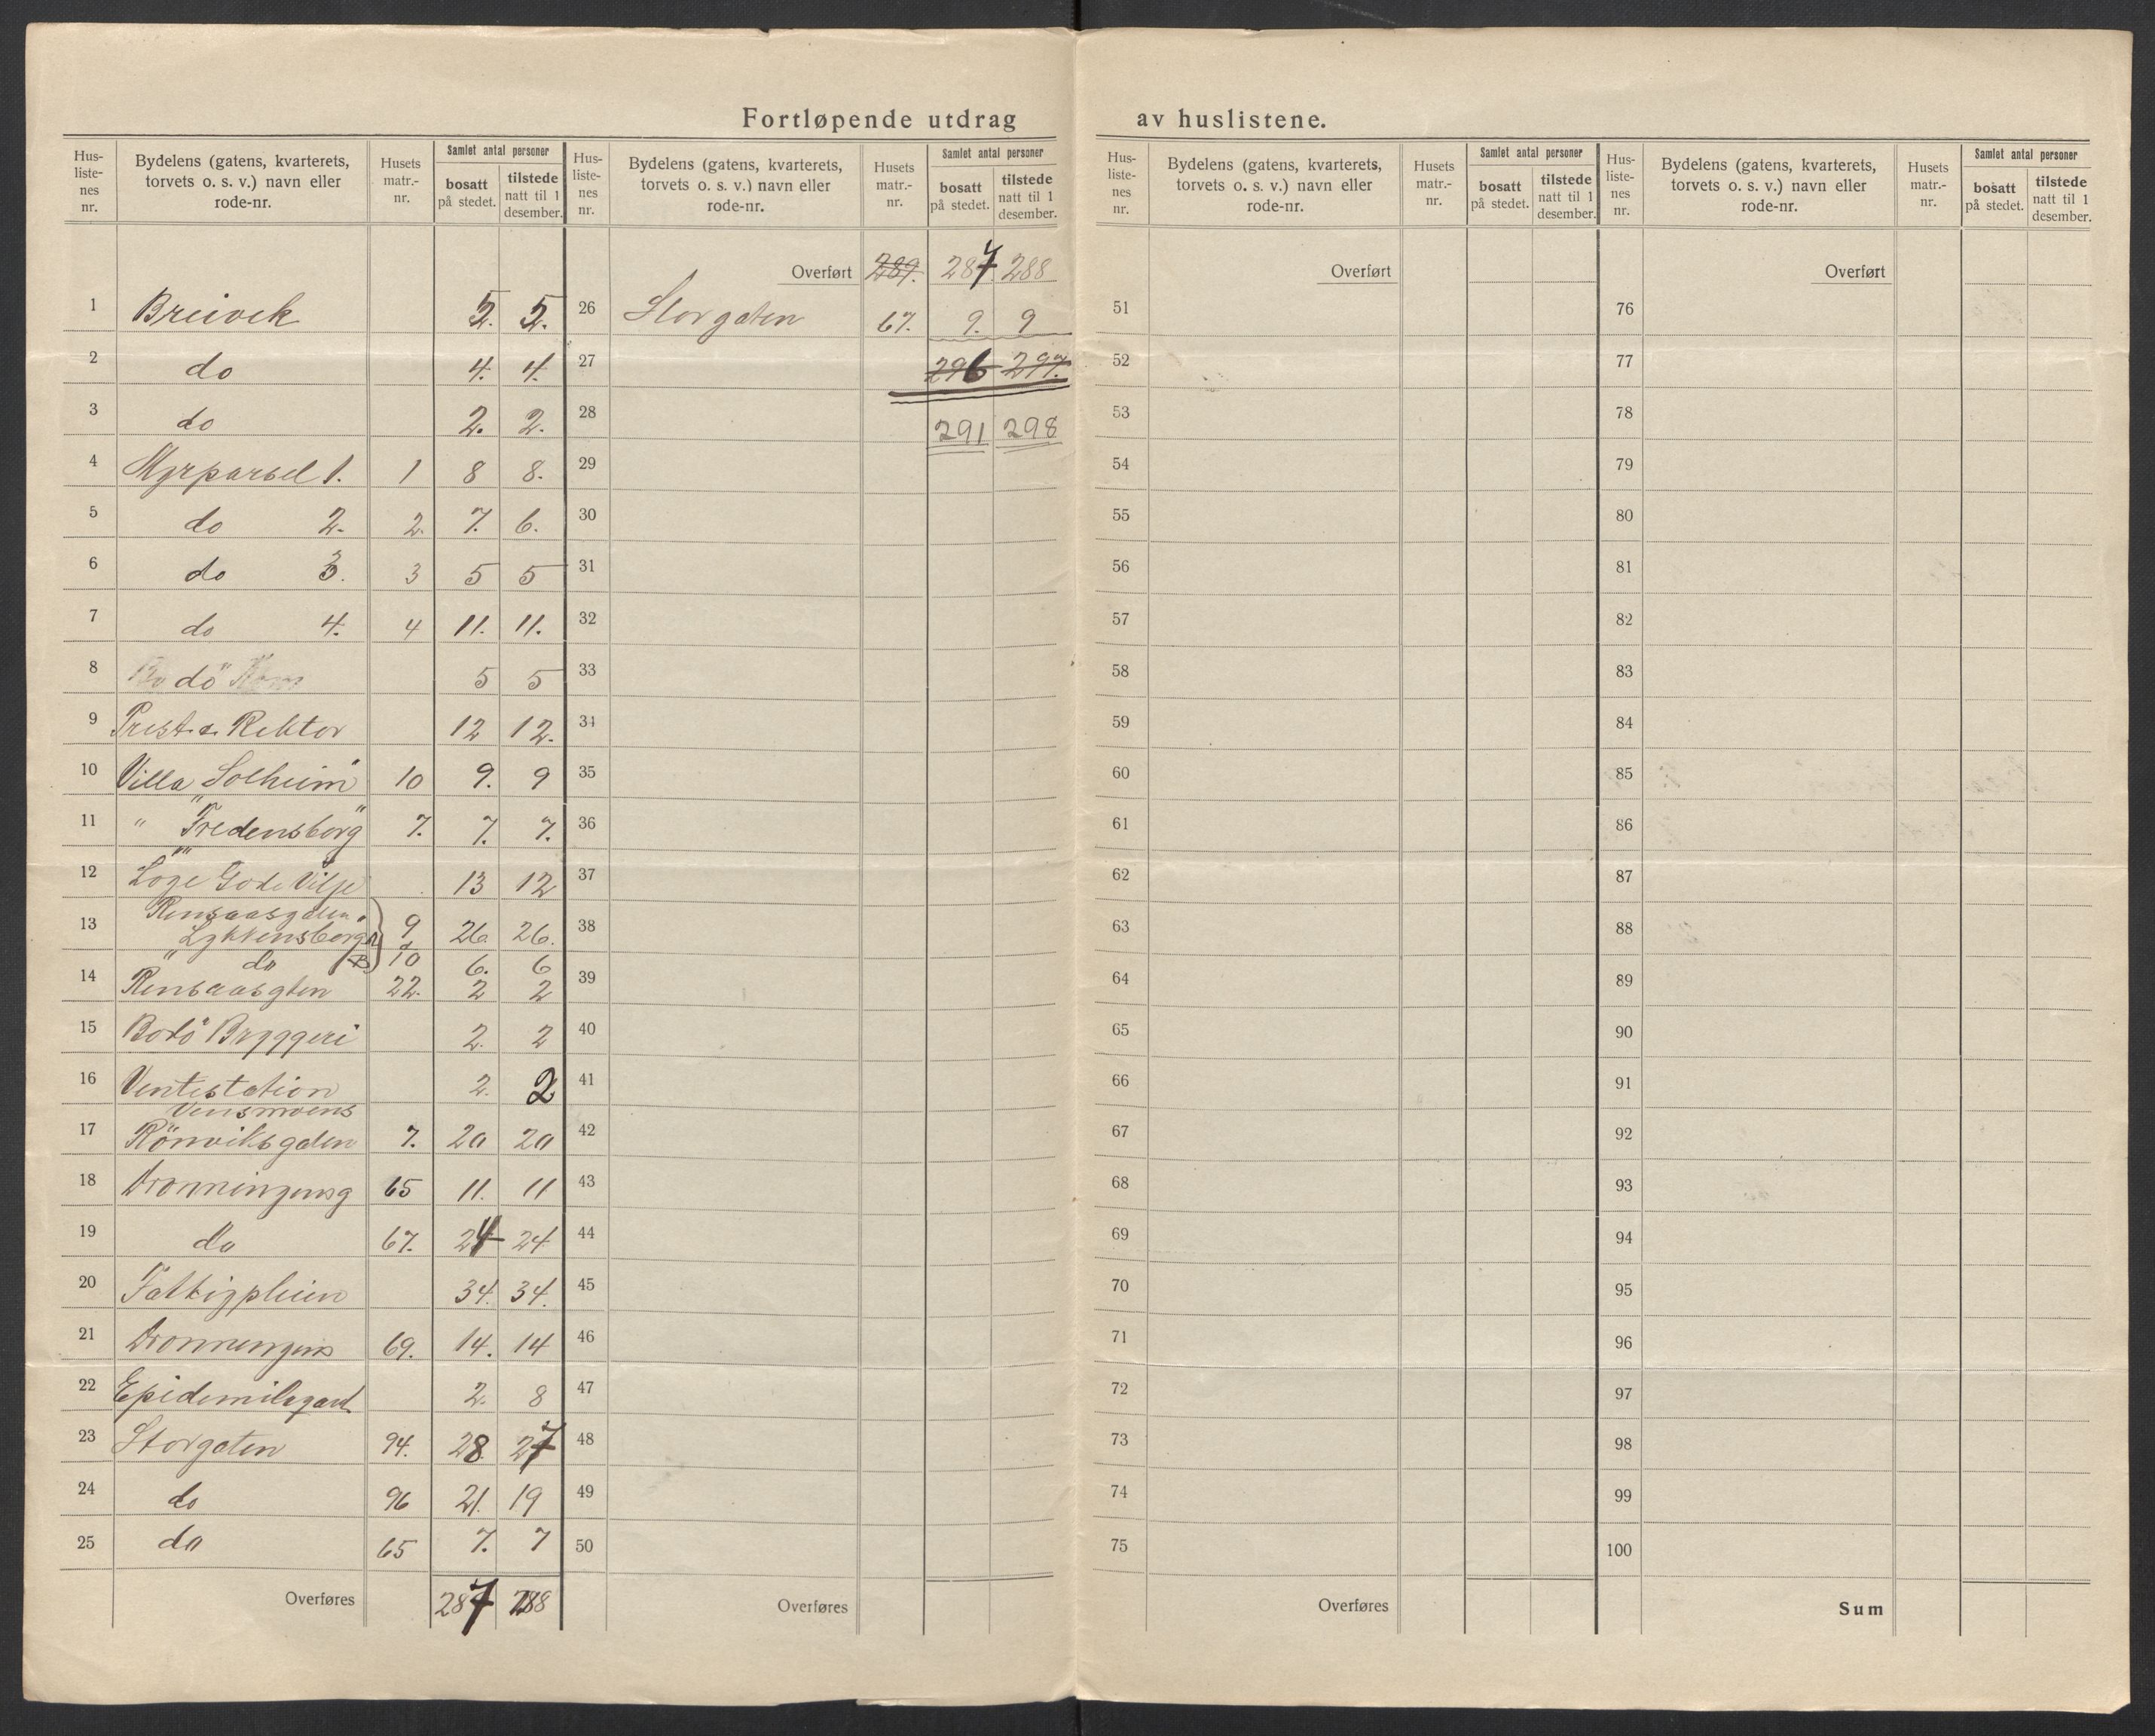 Fortløpende utdrag av huslistene.
Hus-liste-nes nr. | Bydelens (gatens, kvarterets, torvets o. s. v.) navn eller rode-nr. | Husets matr.-nr. | Samlet antal personer bosatt på stedet. | tilstede natt til 1 desember.
1 Breivik 5. 5.
2 do 4. 4.
3 do 2. 2.
4 Myrparsel 1. 1 8 8.
5 do 2. 2. 7. 6.
6 do 3. 3 5 5
7 do 4. 4 11. 11.
8 Bodö 5 5
9 Prest.s. Rektor 12 12.
10 Villa "Solheim" 10 9. 9
11 " "Fredensborg" 7. 7. 7.
12 Loge Gode Vilje 13 12
13 Rensaasgaten "Lykkensborg" 9 26. 26.
" do B 10 6. 6
14 Rensaasgten 22. 2 2
15 Bodö Bryggeri 2. 2
16 Ventestation 2. 2
Vensmoens
17 Rönviksgaten 7. 20 20
18 Dronningensg 65 11. 11
19 do 67. 24 24
20 Fattigpleien 34. 34.
21 Dronningens 69. 14. 14
22 Epidemilsgaard 2. 8
23 Storgaten 94. 28. 27
24 do 96 21. 19
25 do 65 7. 7
Overføres 287 288
Hus-liste-nes nr. | Bydelens (gatens, kvarterets, torvets o. s. v.) navn eller rode-nr. | Husets matr.-nr. | Samlet antal personer bosatt på stedet. | tilstede natt til 1 desember.
Overført 289. 287 288
26 Storgaten 67. 9. 9
27 296 297.
28 291 298
29
30
31
32
33
34
35
36
37
38
39
40
41
42
43
44
45
46
47
48
49
50
Overføres
Hus-liste-nes nr. | Bydelens (gatens, kvarterets, torvets o. s. v.) navn eller rode-nr. | Husets matr.-nr. | Samlet antal personer bosatt på stedet. | tilstede natt til 1 desember.
Overført
51
52
53
54
55
56
57
58
59
60
61
62
63
64
65
66
67
68
69
70
71
72
73
74
75
Overføres
Hus-liste-nes nr. | Bydelens (gatens, kvarterets, torvets o. s. v.) navn eller rode-nr. | Husets matr.-nr. | Samlet antal personer bosatt på stedet. | tilstede natt til 1 desember.
Overført
76
77
78
79
80
81
82
83
84
85
86
87
88
89
90
91
92
93
94
95
96
97
98
99
100
Sum